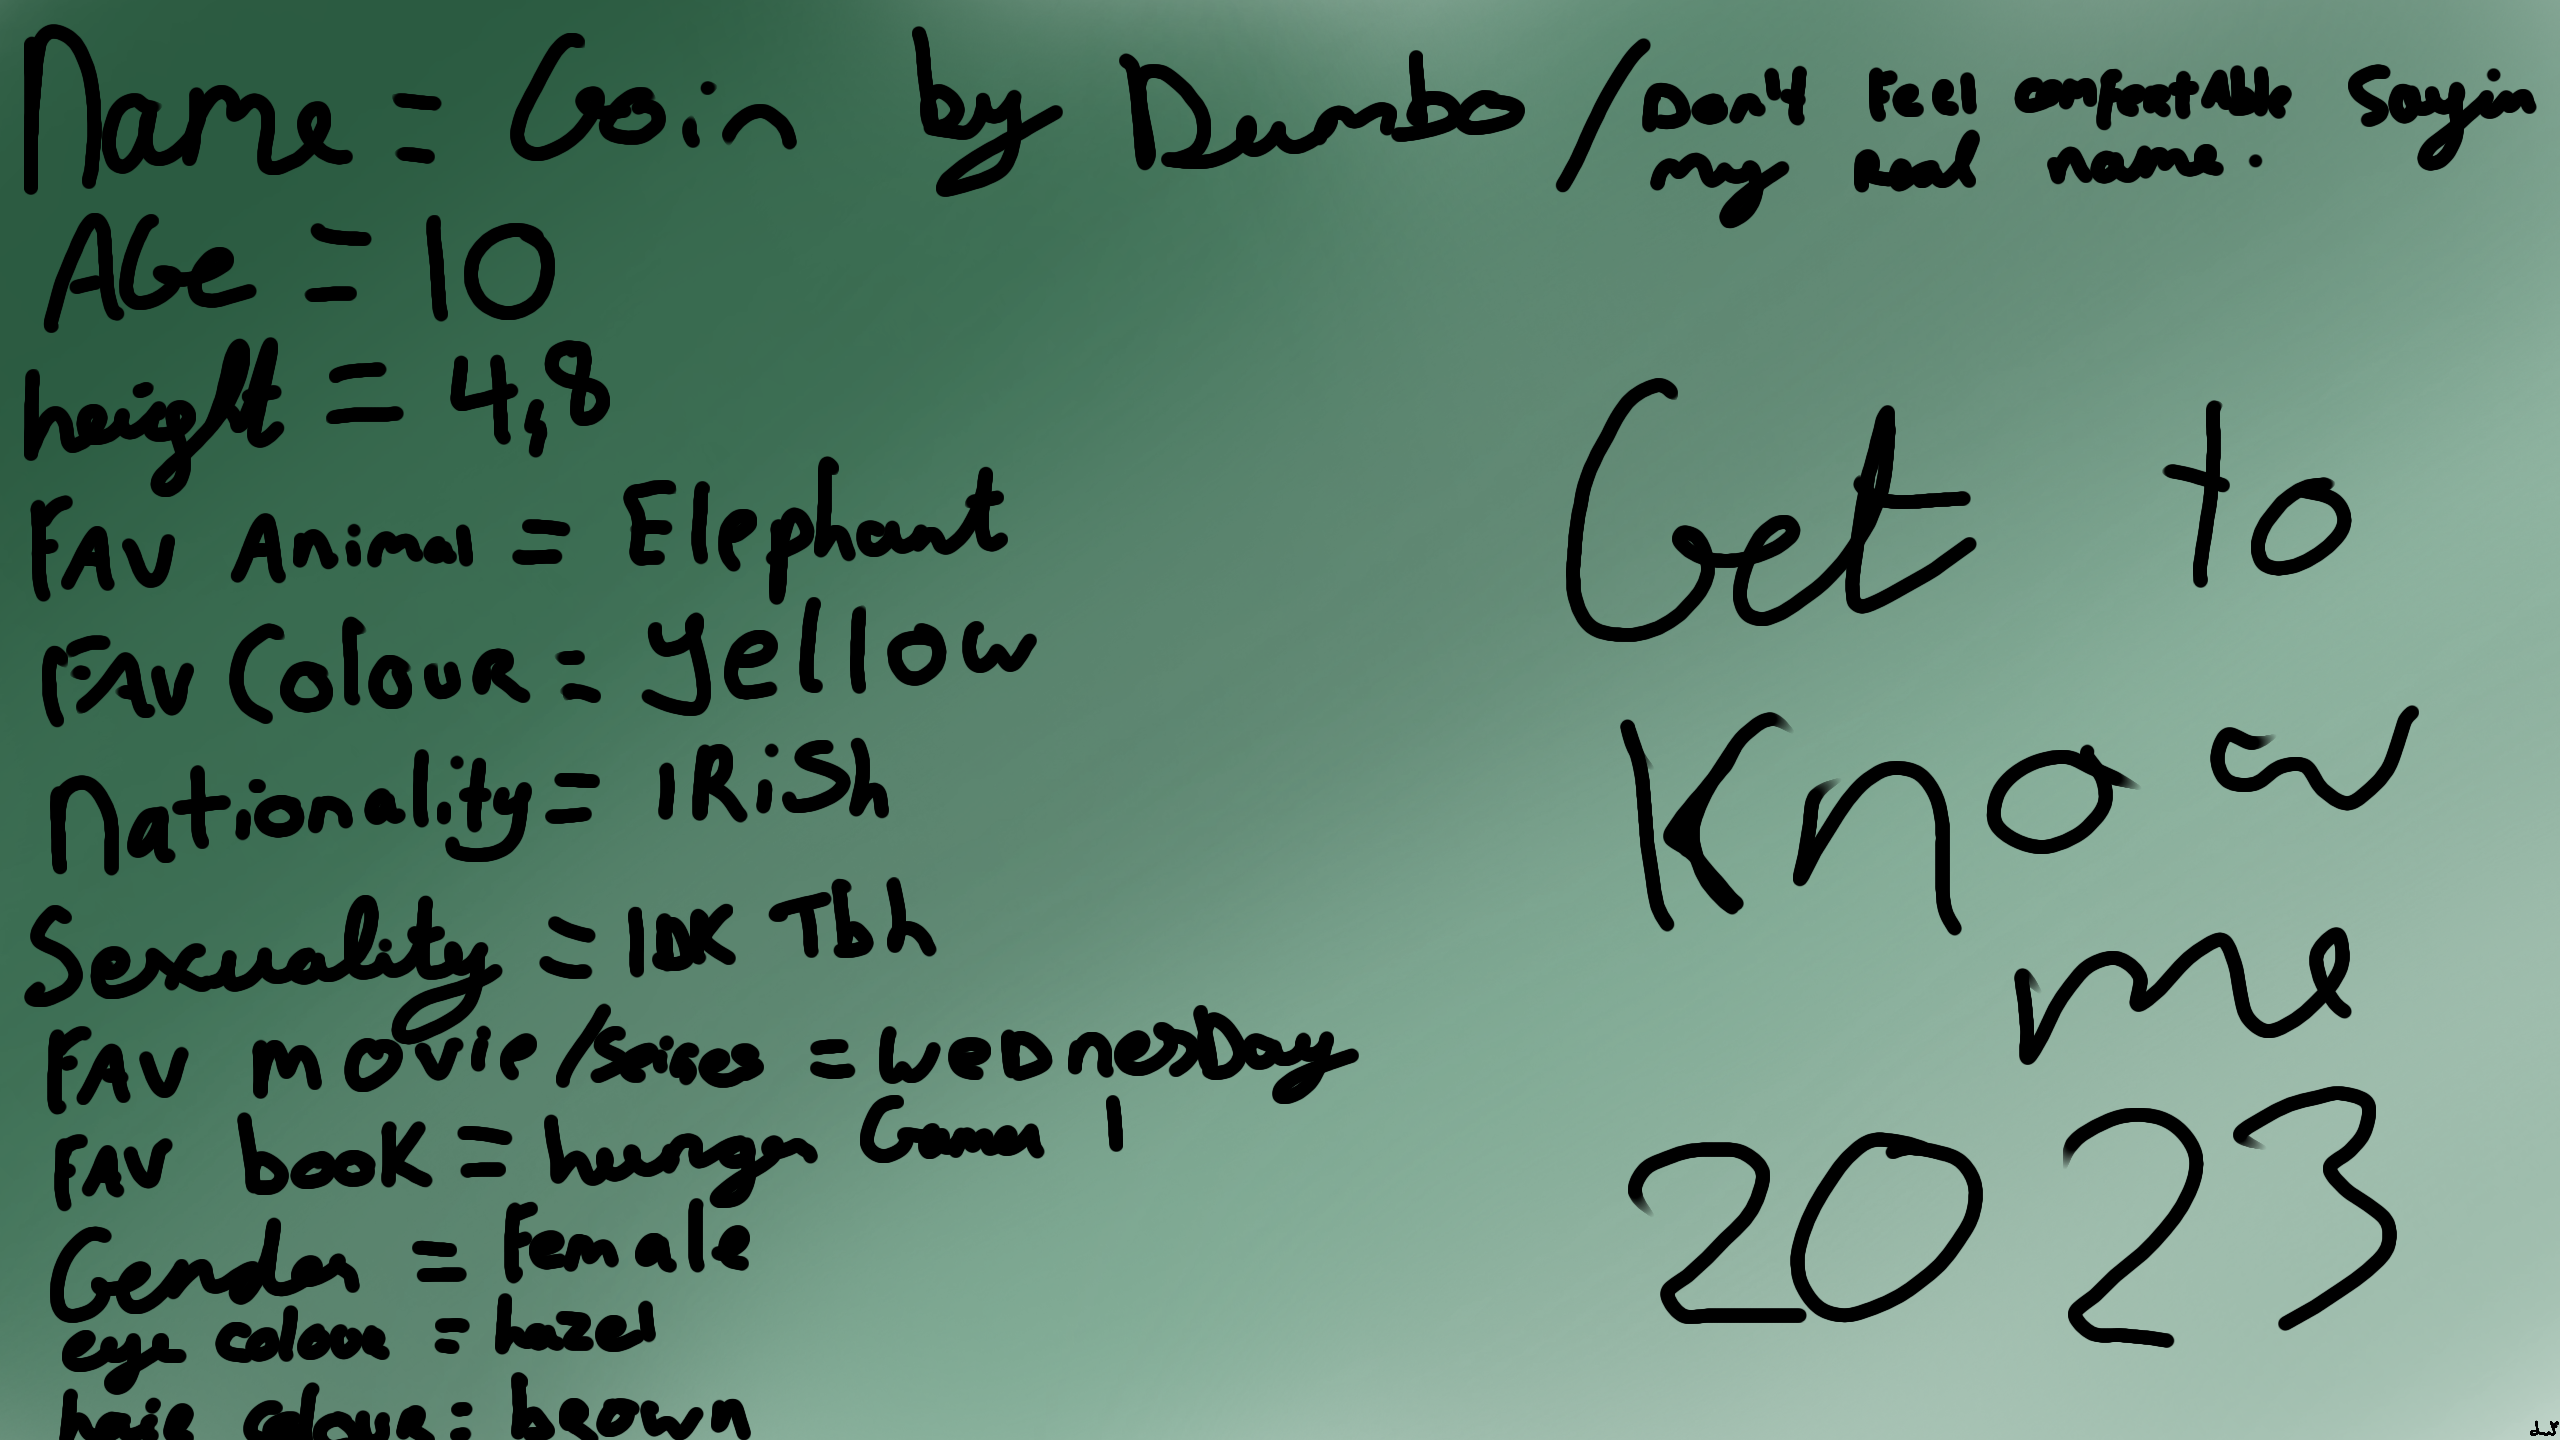 Name = Goin by Dumbo / Don't Feel comfertAble Sayin
my Real name.
AGe = 10
height = 4,8
FAV Animal = Elephant
FAV Colour = yellow
Nationality = IRiSh
Sexuality = IDK Tbh
FAV movie/Seises = WeDnesDay
FAV booK = hunger Games 1
Gender = Female
eye colour = hazel
hair colour = brown
Get to
Know
me
2023